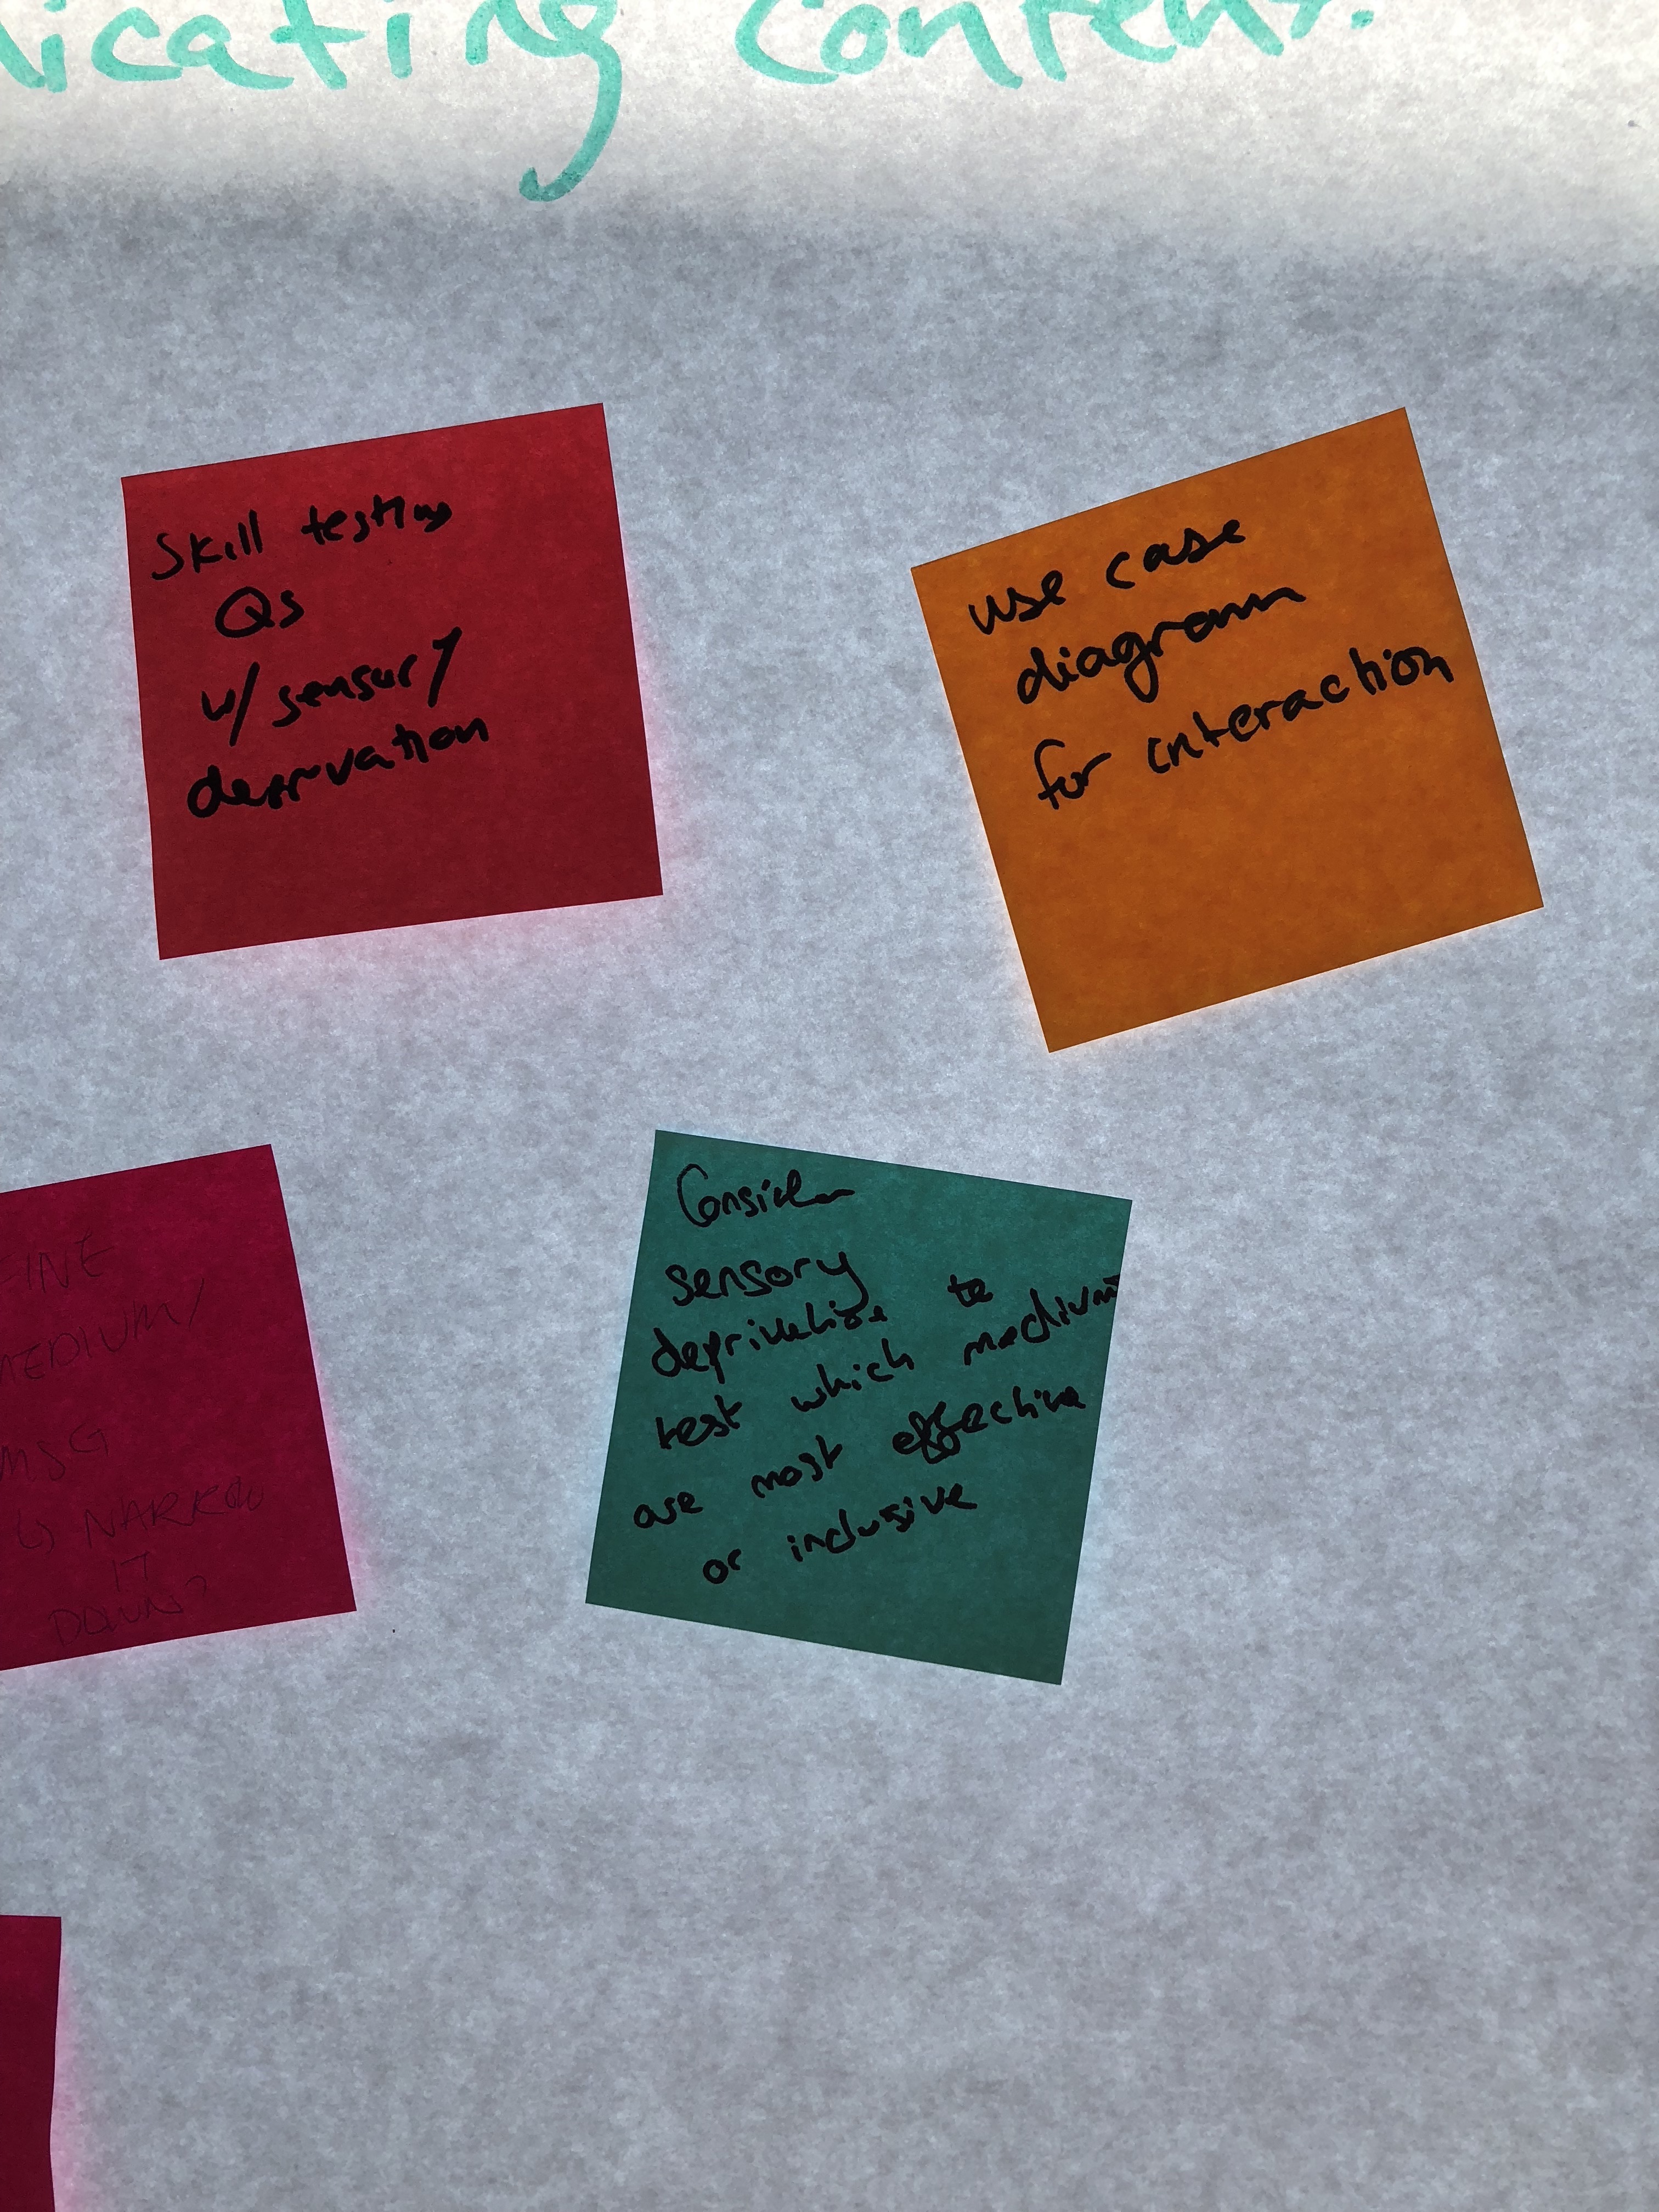 icating Content.
Skill testing
Qs
w/ sensory
deprivation
use case
diagram
for interaction
FINE
MEDIUM/
MSG
↳ NARROW
IT
DOWN?
Consider
sensory
deprivation to
test which mediums
are most effective
or inclusive